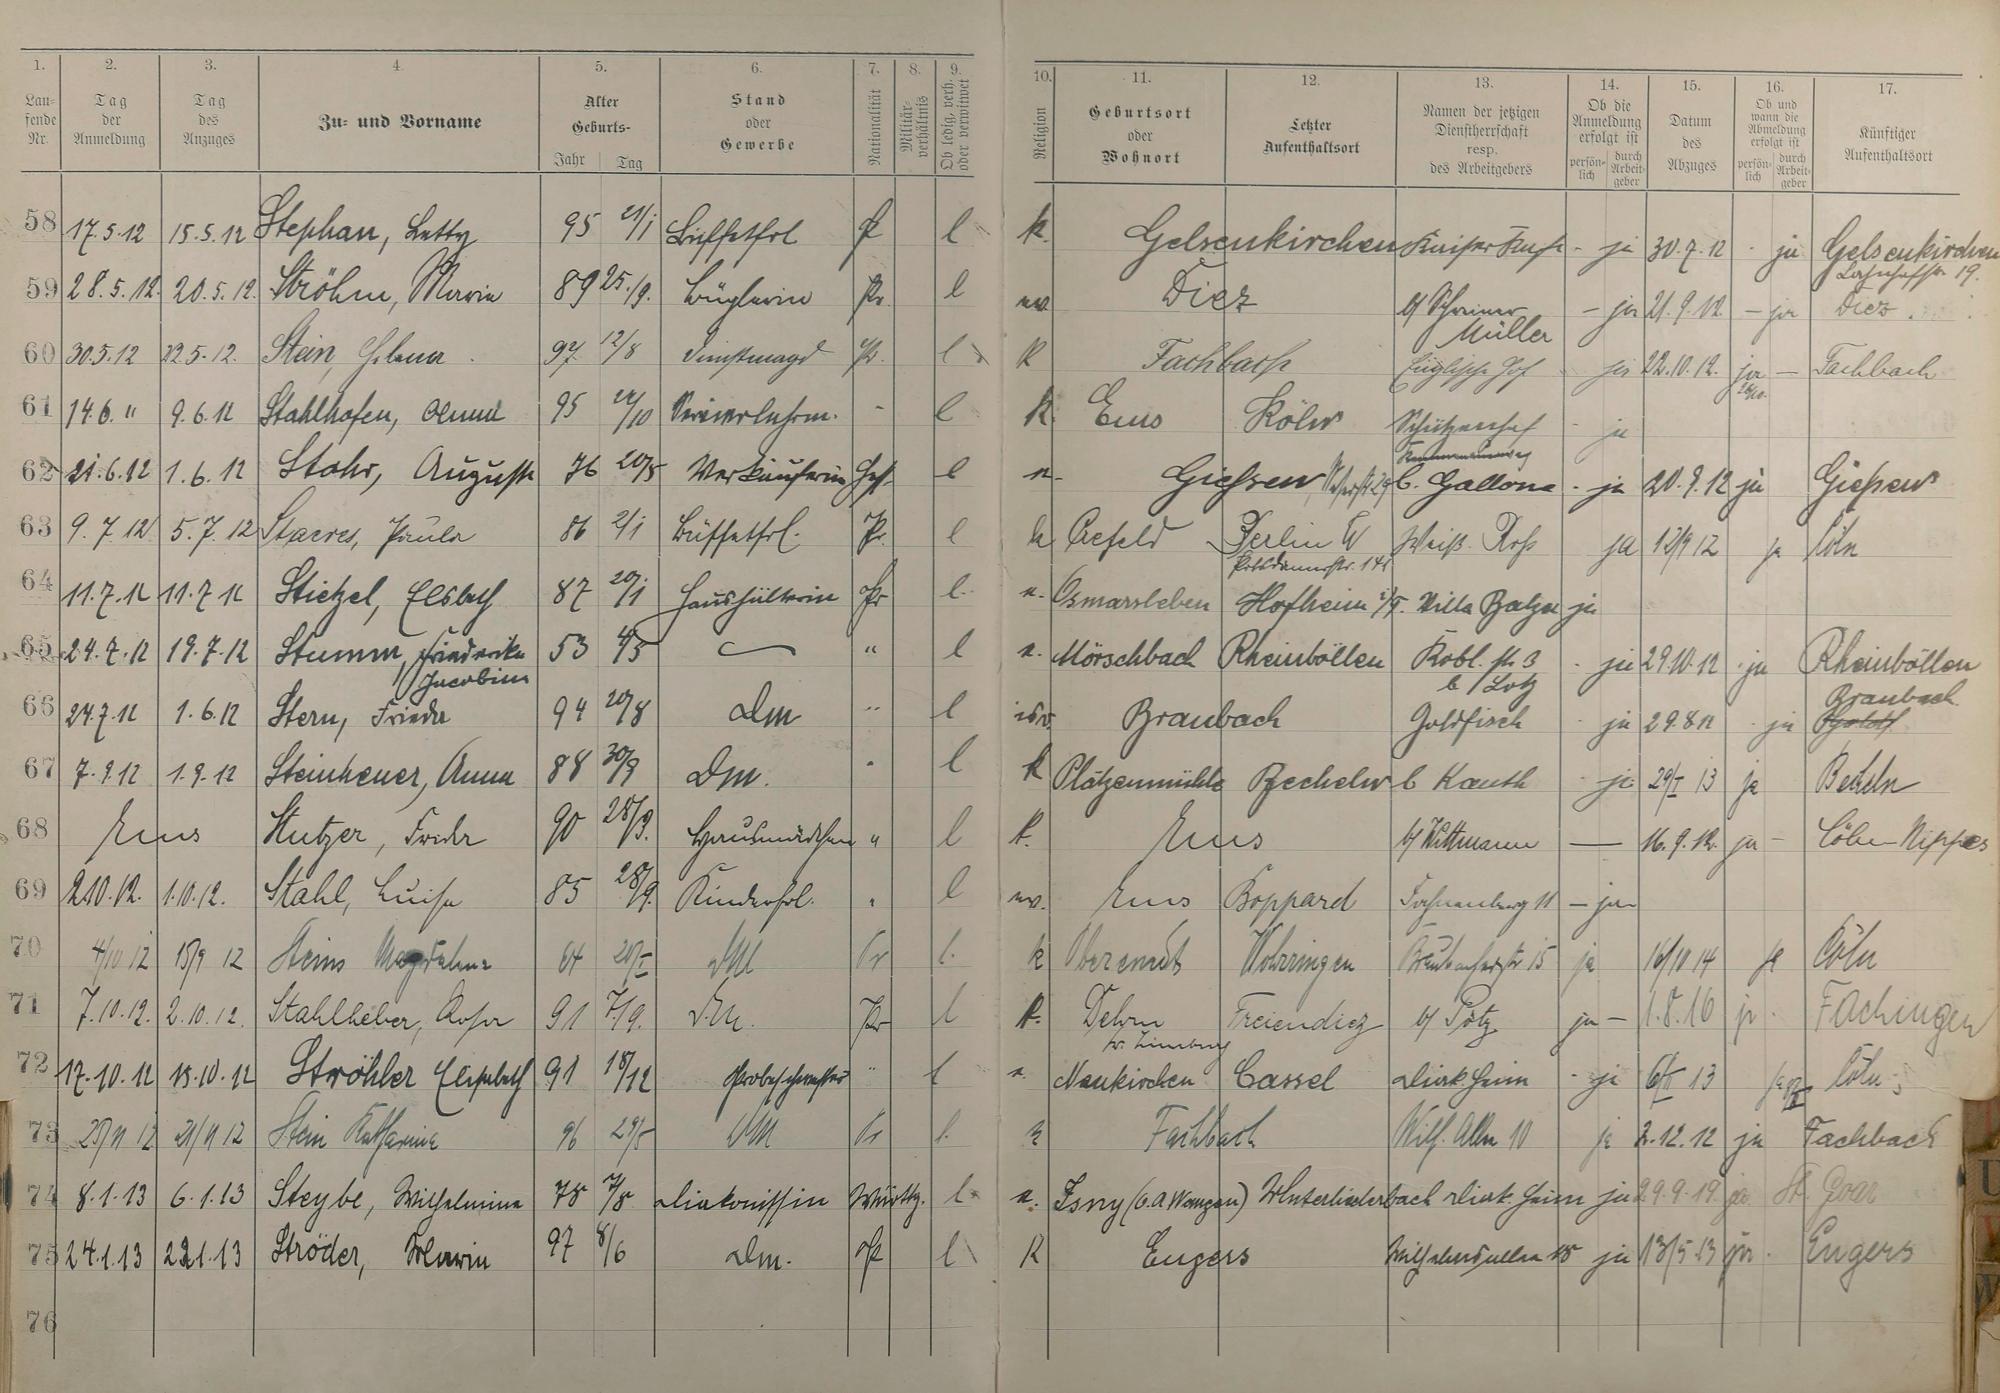 1. 2. 3. 4. 5. 6. 7. 8. 9. 10. 11. 12. 13. 14. 15. 16. 17.
Laufende Nr. Tag der Anmeldung Tag des Anzuges Zu- und Vorname Alter Geburts- Jahr Tag Stand oder Gewerbe Nationalität Militärverhältnis Ob ledig, verh. oder verwitwet Religion Geburtsort oder Wohnort Letzter Aufenthaltsort Namen der jetzigen Dienstherrschaft resp. des Arbeitgebers Ob die Anmeldung erfolgt ist persönlich durch Arbeitgeber Datum des Abzuges Ob und wann die Abmeldung erfolgt ist persönlich durch Arbeitgeber Künftiger Aufenthaltsort
58 17.5.12 15.5.12 Stephan, Letty 95 21/1 Büffetfrl P l k. Gelsenkirchen - ja 30.7.12 - ja Gelsenkirchen
19.
59 28.5.12. 20.5.12. Ströhm, Maria 89 25./9. Büglerin Pr. l ev. Diez b/ Schreiner Müller - ja 21.9.12. - ja Diez
60 30.5.12 22.5.12. Stein, Helena 97 12/8 Dienstmagd Pr. l k Fachbach Englische Hof ja 22.10.12. ja - Fachbach
61 14.6. " 9.6.12 Stahlhofen, Anna 95 /10 - l k. Ems Köln Schützenhof - ja
62 21.6.12 1.6.12 Stohr, Auguste 76 20/5 Verkäuferin Hess. l e. Giefsen b. Gallone - ja 20.9.12 ja Giefsen
63 9.7.12 5.7.12 Staeves, Paula 86 2/1 Büffetfrl. Pr. l k Crefeld Berlin W Weiß. Roß ja 12/9 12 ja Cöln
Potsdamerstr. 141
64 11.7.12 11.7.12 Stietzel, Elsbeth 87 20/1 Haushälterin Pr l. e. Osmarsleben Hofheim i/T. Villa Balzer ja
65 24.7.12 19.7.12 Stumm, Friederike Jacobine 53 4/5 — " l e. Mörschbach Rheinböllen Kobl. str 3 b/ Lotz - ja 29.10.12 - ja Rheinböllen
66 24.7.12 1.6.12 Stern, Frieda 94 20/8 Dm " l isr. Braubach Goldfisch - ja 29.8 12 - ja Braubach
67 7.9.12 1.9.12 Steinhener, Anna 88 30/9 Dm. " l k Plätzenmühle Becheln b Kauth - ja 29/I 13 ja Becheln
68 Ems Stutzer, Frieda 90 28/9. Hausmädchen " l k. Ems b/ Wittmann — 16.9.12. ja - Cöln-Nippes
69 2.10.12. 1.10.12. Stahl, Luise 85 28/9. Kinderfrl. " l ev. Ems Boppard 11 - ja
70 4/10 12 15/9 12 Steins Magdalena 64 20/5 DM Pr l. k Wohrringen 15 ja 16/10 14 ja Cöln
71 7.10.12. 2.10.12. Stahlheber, Rosa 91 7/9. Dm. Pr l k. Dehrn b. Limburg Freiendiez b/ Pötz ja - 1.8.16 ja - Fachingen
72 17.10.12 15.10.12 Ströhler Elisabeth 91 18/12 Probeschwester " l e. Neukirchen Cassel Diak. Heim - ja 6/II 13 ja Cöln
73 25/11 12 21/11 12 Stein Katharina 96 29/5 DM Pr l. k Fachbach Wilh. Allee 10 ja 2.12.12 ja Fachbach
74 8.1.13 6.1.13 Steybe, Wilhelmine 78 7/8 Diakonissin Württg. l. e. Isny (O.A Wangen) Unterliederbach Diak. Heim ja 29.9.19 ja St. Goar
75 24.1.13 23.1.13 Ströder, Maria 97 8/6 Dm. Pr l k Engers Wilhelmsallee 15 ja 13/5.13 ja - Engers
76